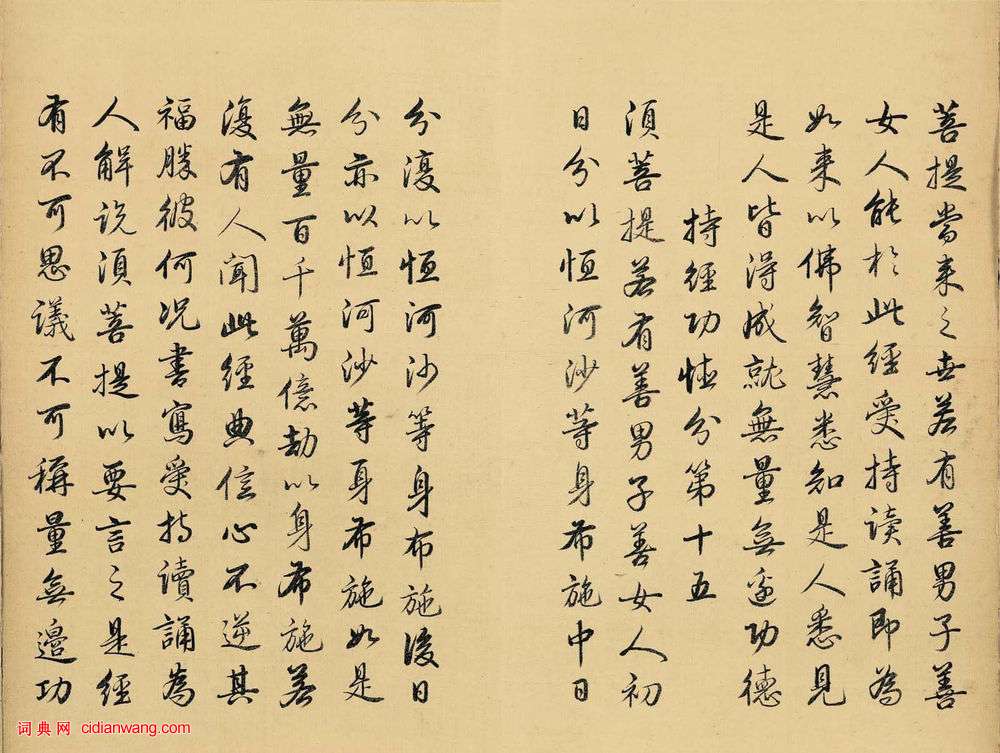 菩提當来之世若有善男子善
女人能於此經受持读誦即為
如来以佛智慧悉知是人悉見
是人皆得成就無量無邊功德
持經功德分第十五
須菩提若有善男子善女人初
日分以恒河沙等身布施中日
分復以恒河沙等身布施後日
分亦以恒河沙等身布施如是
無量百千萬億劫以身布施若
復有人聞此經典信心不逆其
福勝彼何况書寫受持讀誦為
人解説須菩提以要言之是經
有不可思議不可稱量無邊功
词典网 cidianwang.com